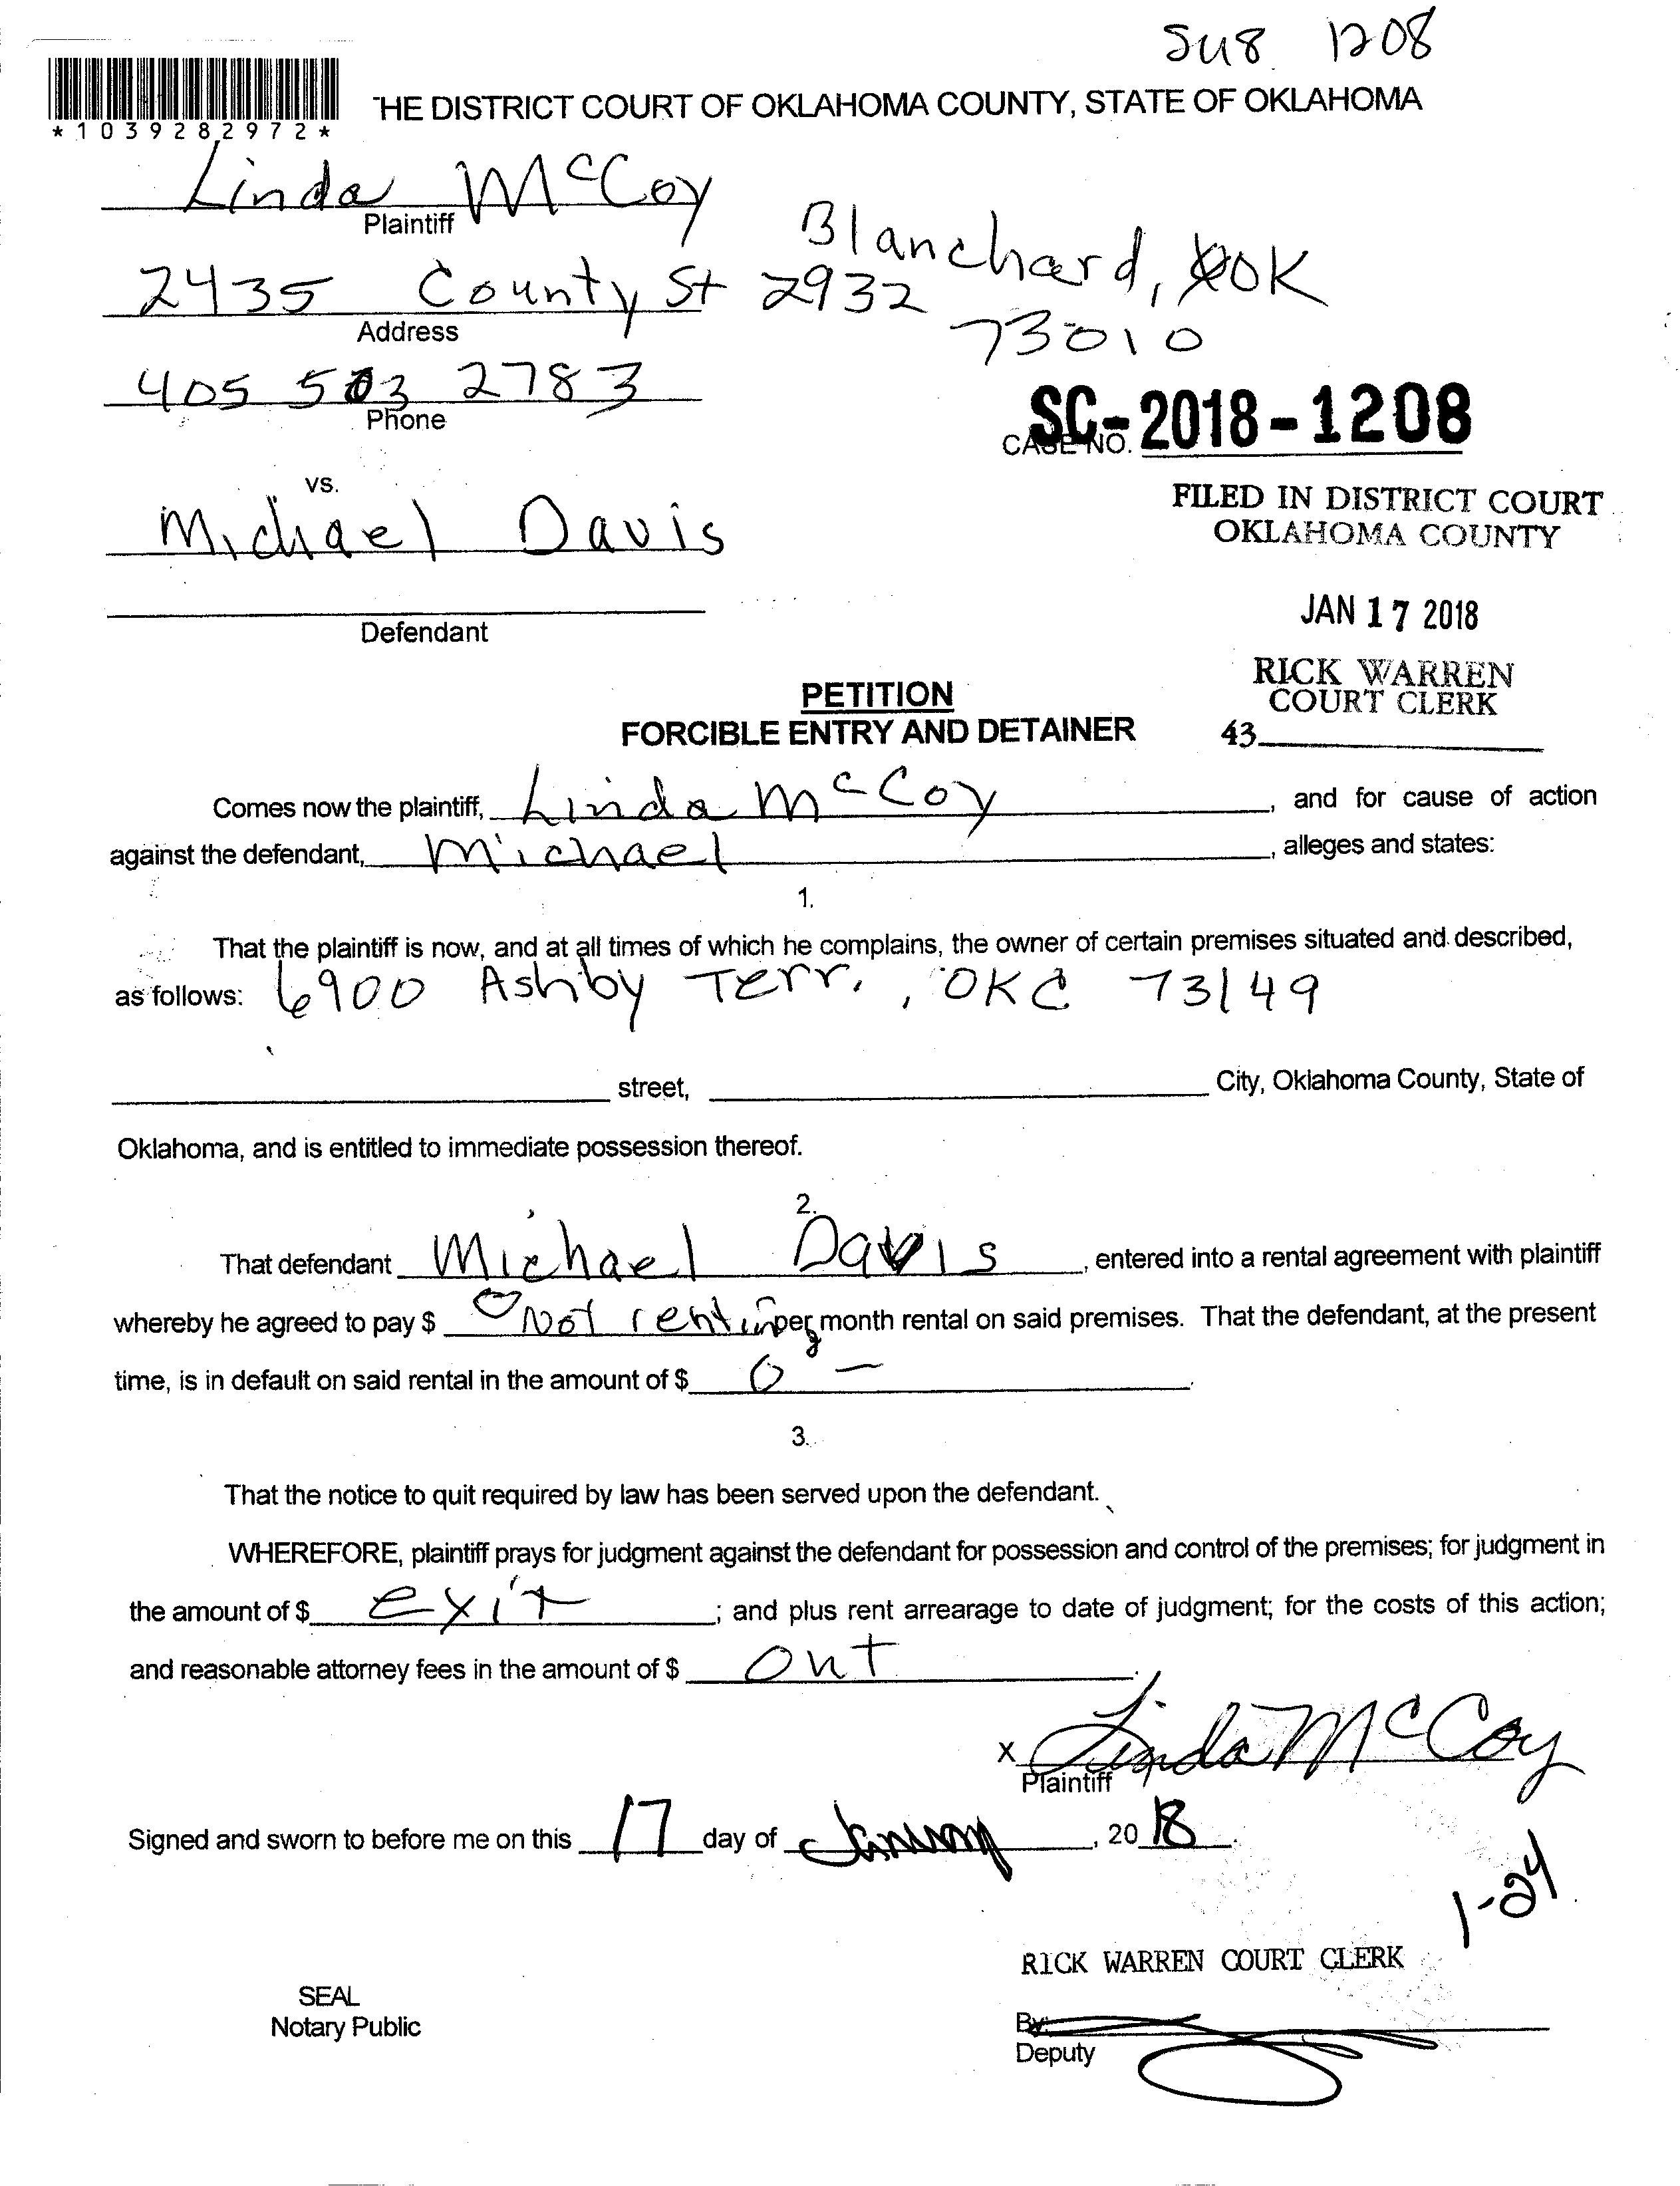 SU8 1208
*1039282972*
THE DISTRICT COURT OF OKLAHOMA COUNTY, STATE OF OKLAHOMA
Linda McCoy
Plaintiff
Blanchard, OK
2435 County St 2932
73010
Address
405 503 2783
Phone
CASE NO. SC-2018-1208
vs.
FILED IN DISTRICT COURT
OKLAHOMA COUNTY
Michael Davis
JAN 17 2018
Defendant
RICK WARREN
COURT CLERK
43
PETITION
FORCIBLE ENTRY AND DETAINER
Comes now the plaintiff, Linda McCoy, and for cause of action
against the defendant, Michael, alleges and states:
1.
That the plaintiff is now, and at all times of which he complains, the owner of certain premises situated and described,
as follows: 6900 Ashby Terr., OKC 73149
street, City, Oklahoma County, State of
Oklahoma, and is entitled to immediate possession thereof.
2.
That defendant Michael Davis, entered into a rental agreement with plaintiff
whereby he agreed to pay $ Not renting per month rental on said premises. That the defendant, at the present
time, is in default on said rental in the amount of $ 0 —.
3.
That the notice to quit required by law has been served upon the defendant.
WHEREFORE, plaintiff prays for judgment against the defendant for possession and control of the premises; for judgment in
the amount of $ exit; and plus rent arrearage to date of judgment; for the costs of this action;
and reasonable attorney fees in the amount of $ out.
x Linda McCoy
Plaintiff
Signed and sworn to before me on this 17 day of January, 2018.
1-24
RICK WARREN COURT CLERK
SEAL
Notary Public
By:
Deputy